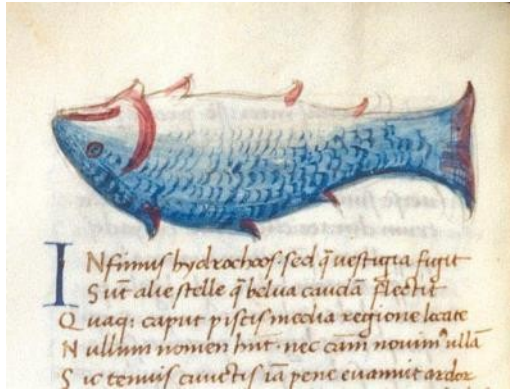 INfimus hydrochoos· sed q̄ vestigia figit
Sūt alie stelle q̄ belua caudā flectit
Quaq; caput piscis media regione locate
Nullum nomen hn̄t· nec cām novimꝰ ullā
Sic tenuis cunctis iā pene evanuit ardor